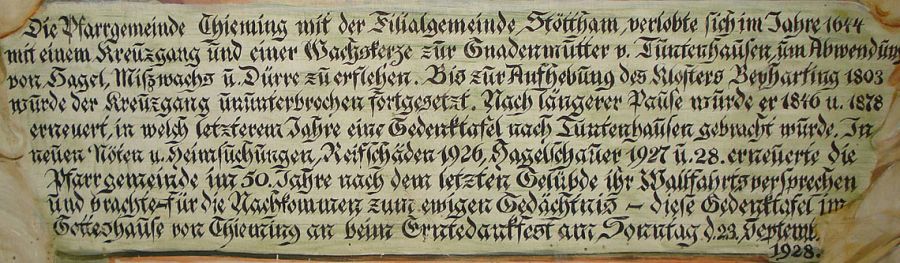 Die Pfarrgemeinde Thieming mit der Filialgemeinde Stöttham, verlobte sich im Jahre 1644
mit einem Kreuzgang und einer Wachskerze zur Gnadenmutter v. Tuntenhausen, um Abwendung
von Hagel, Miszwachs u. Dürre zu erflehen. Bis zur Aufhebung des Klosters Beyharting 1803
wurde der Kreuzgang ununterbrochen fortgesetzt. Nach längerer Pause wurde er 1846 u. 1878
erneuert, in welch letzterem Jahre eine Gedenktafel nach Tuntenhausen gebracht wurde. In
neuen Nöten u. Heimsuchungen, Reifschäden 1926, Hagelschauer 1927 u. 28. erneuerte die
Pfarrgemeinde im 50. Jahre nach dem letzten Gelübde ihr Wallfahrtsversprechen
und brachte – für die Nachkommen zum ewigen Gedächtnis – diese Gedenktafel im
Gotteshause von Thieming an beim Erntedankfest am Sonntag d. 23. Septemb.
1928.